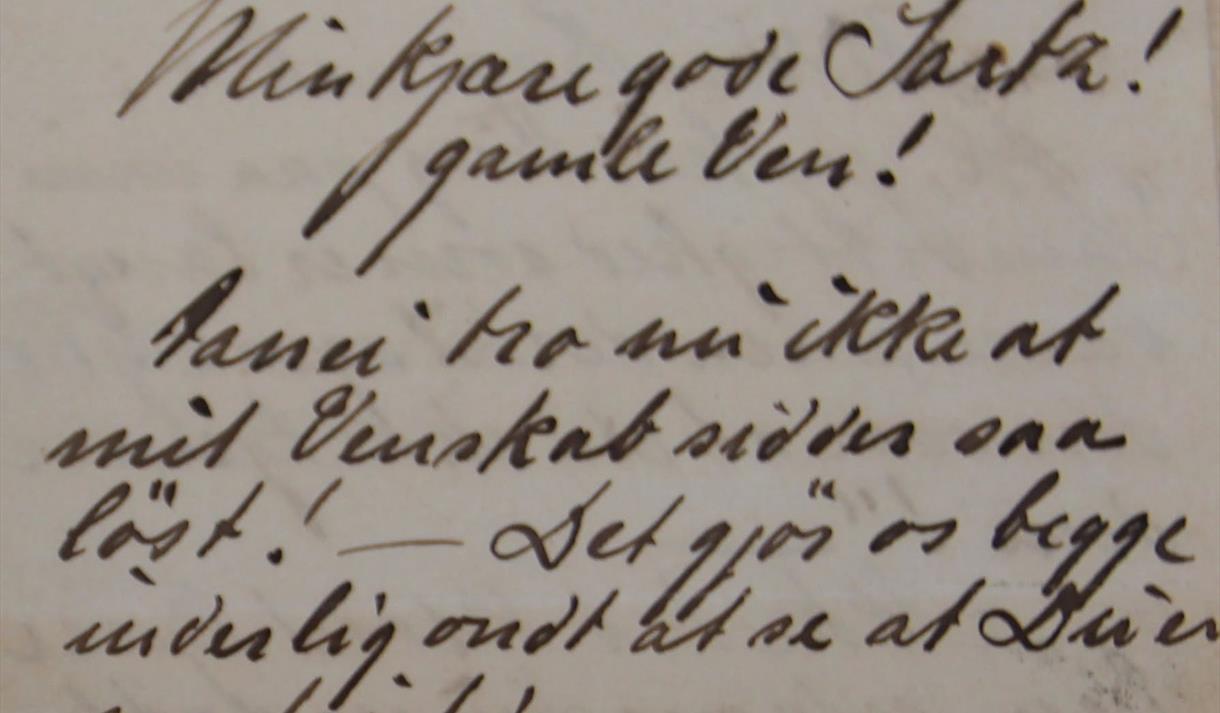 Min kjære gode Sartz!
gamle Ven!
tro nu ikke at
mit Venskab sidder saa
löst! — Det gjör os begge
inderlig ondt at se at Du er